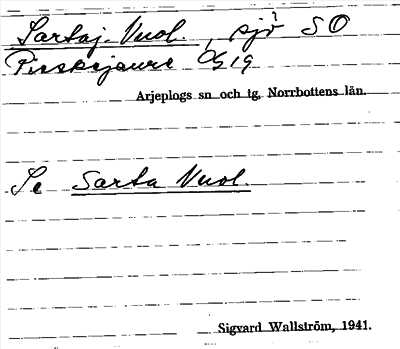 Sartaj. Vuol. , sjö SO
Pieskejaure
Arjeplogs sn och tg, Norrbottens län.
Se Sarta Vuol.
Sigvard Wallström, 1941.